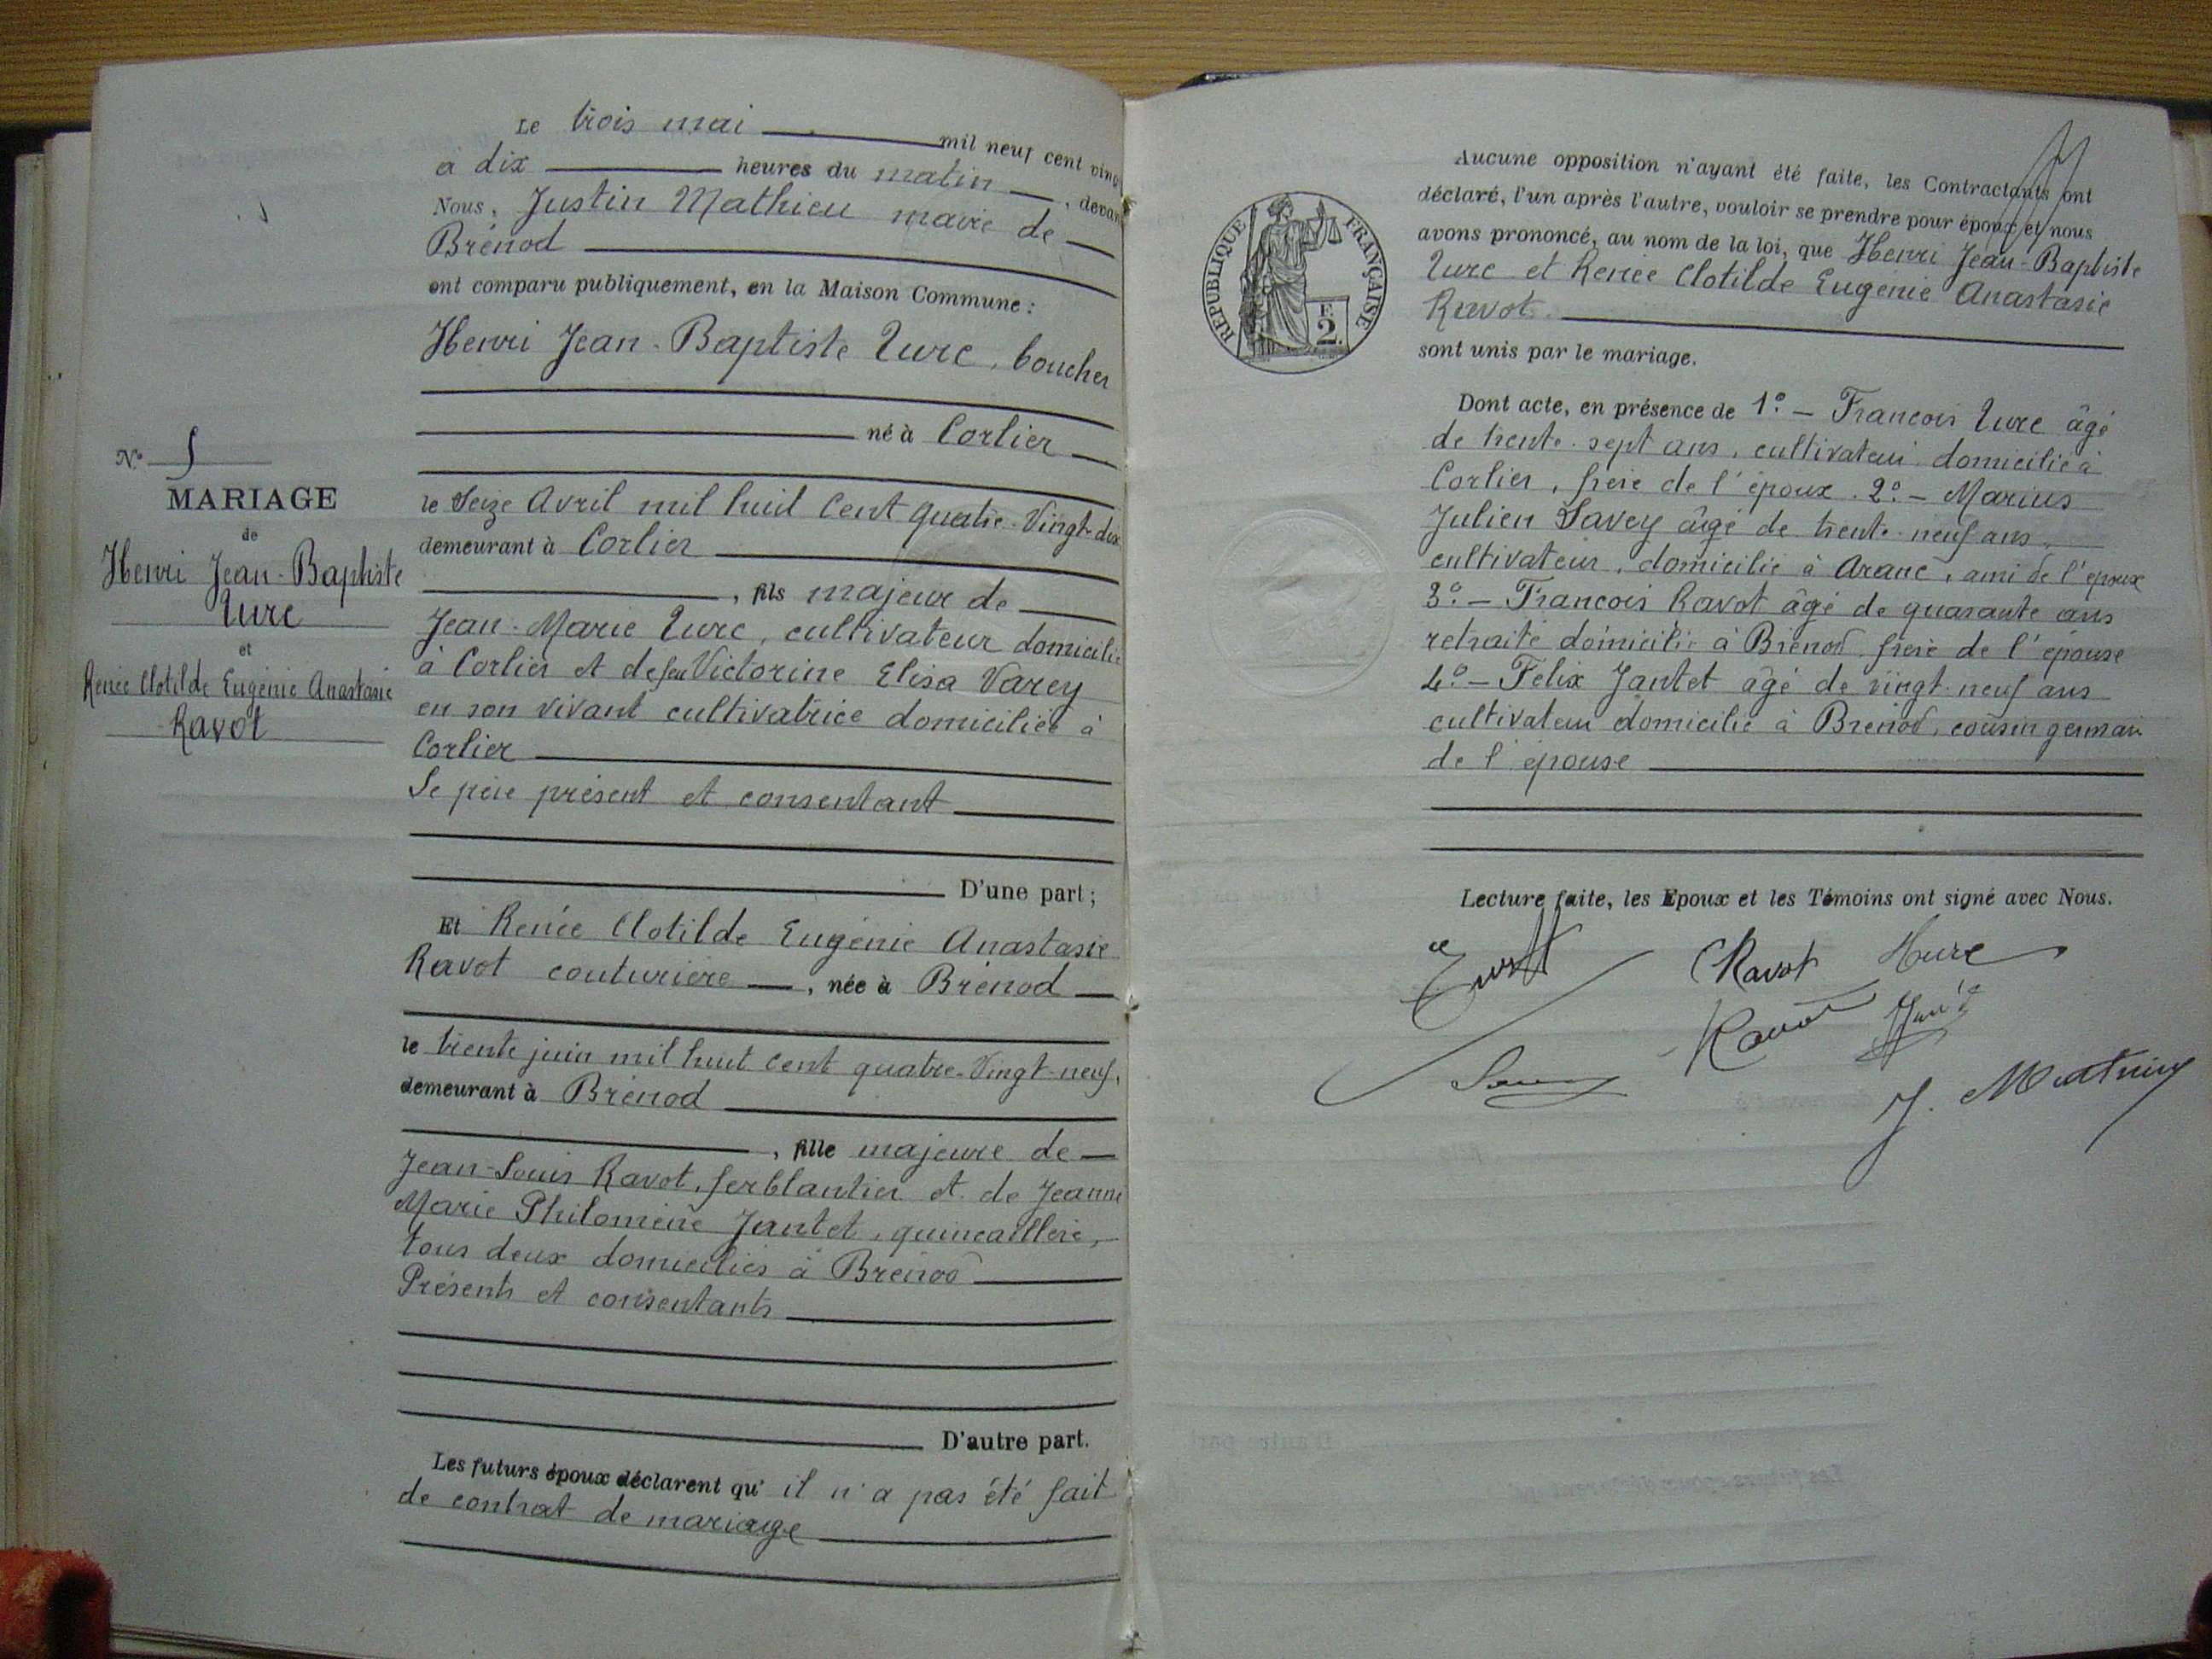 Le trois mai mil neuf cent vingt
a dix heures du matin, devant
Nous, Justin Mathieu maire de
Brénod
ont comparu publiquement, en la Maison Commune :
Henri Jean-Baptiste Lurc, boucher
né à Corlier
le Seize Avril mil huit Cent quatre-Vingt-dix
demeurant à Corlier
, fils majeur de
Jean-Marie Lurc, cultivateur domicilié
à Corlier et de feu Victorine Elisa Varey
en son vivant cultivatrice domiciliée à
Corlier
Le père présent et consentant
D'une part ;
Et Renée Clotilde Eugénie Anastasie
Ravot couturière, née à Brénod
le trente juin mil huit cent quatre-Vingt-neuf,
demeurant à Brénod
, fille majeure de
Jean-Louis Ravot, ferblantier et de Jeanne
Marie Philomène Jantet, quincaillère,
tous deux domiciliés à Brénod
Présents et consentants
D'autre part.
Les futurs époux déclarent qu' il n'a pas été fait
de contrat de mariage
N° 5
MARIAGE
de
Henri Jean-Baptiste
Lurc
et
Renée Clotilde Eugénie Anastasie
Ravot
RÉPUBLIQUE FRANÇAISE
F.
2.
Aucune opposition n'ayant été faite, les Contractants ont
déclaré, l'un après l'autre, vouloir se prendre pour époux et nous
avons prononcé, au nom de la loi, que Henri Jean-Baptiste
Lurc et Renée Clotilde Eugénie Anastasie
Ravot
sont unis par le mariage.
Dont acte, en présence de 1.° - Francois Lurc âgé
de trente-sept ans, cultivateur domicilié à
Corlier, frère de l'époux. 2.° - Marius
Julien Savey âgé de trente-neuf ans,
cultivateur, domicilié à Aranc, ami de l'époux
3.° - Francois Ravot âgé de quarante ans
retraité domicilié à Brénod, frère de l'épouse
4.° - Felix Jantet âgé de vingt-neuf ans
cultivateur domicilié à Brénod, cousin germain
de l'épouse
Lecture faite, les Epoux et les Témoins ont signé avec Nous.
CRavot
Ravot
J. Mathieu